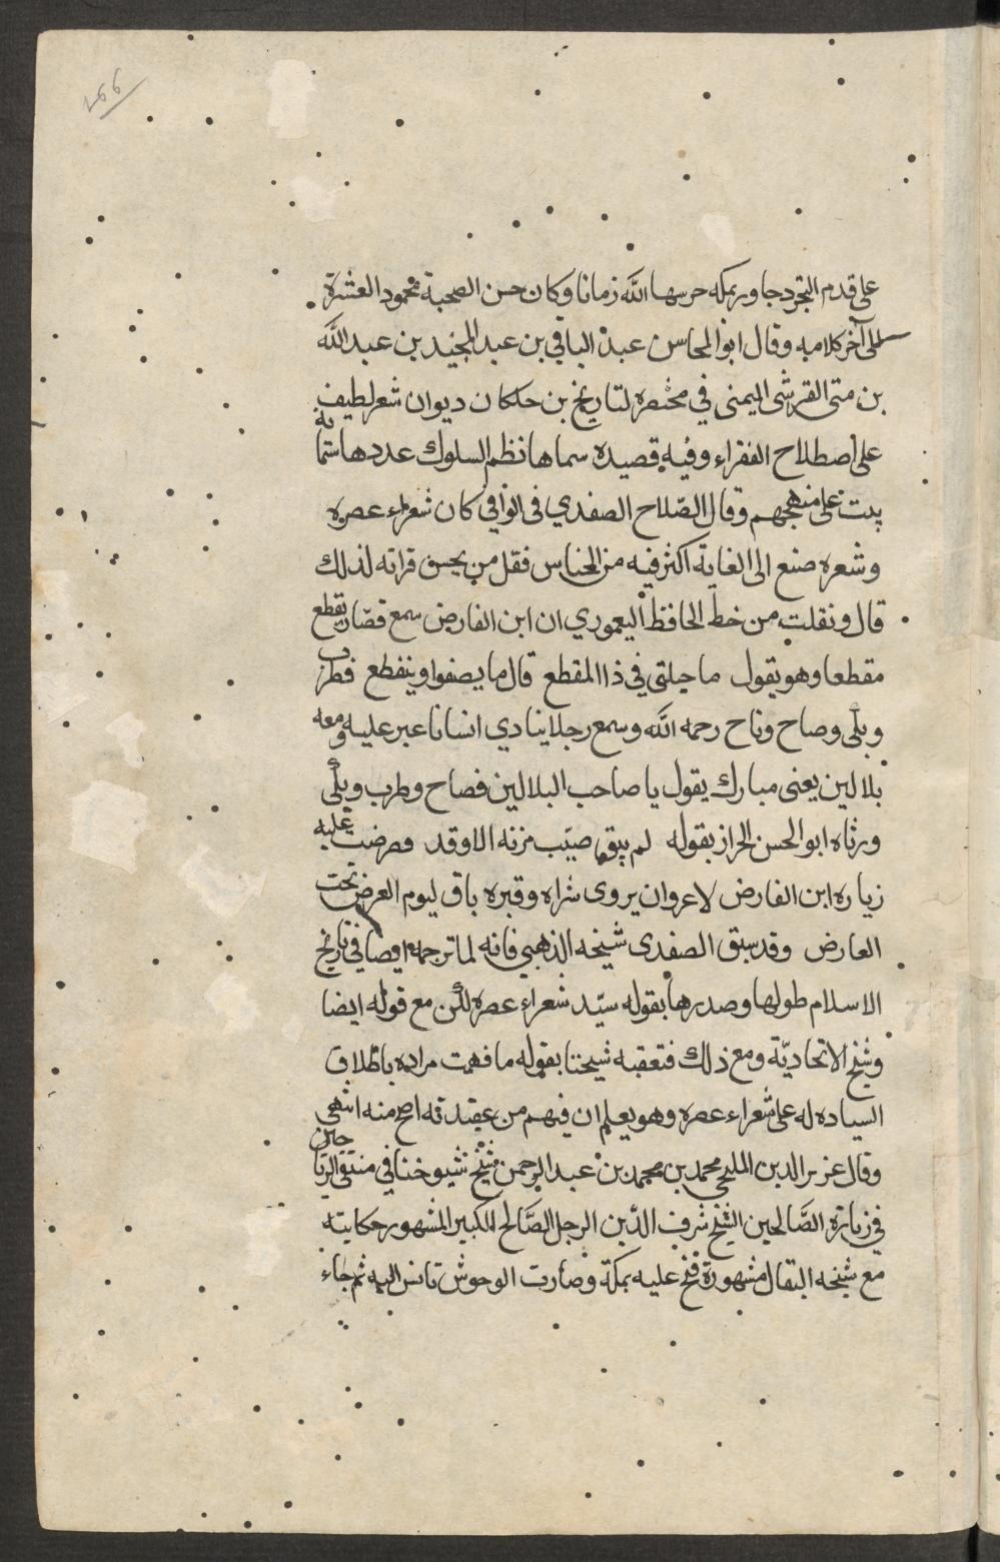 على قدم التجرد جاور بمكه حرسها الله زمانا وكان حسن الصحبة محمود العشرة
الى آخر كلامه وقال ابو المحاسن عبد الباقي بن عبد المجيد بن عبد الله
بن متى القرشى اليمنى في مختصره لتاريخ بن خلكان ديوان شعر لطيف
على اصطلاح الفقراء وفيه قصيده سماها نظم السلوك عددها ستماية
بيت على منهجهم وقال الصّلاح الصفدي فى الوافي كان شعراء عصره
وشعره صنع الى الغاية اكثر فيه من الجناس فقل من يحسن قراته لذلك
قال ونقلت من خط الحافظ اليعموري ان ابن الفارض سمع قصّارا يقطع
مقطعا وهو يقول ما حيلتى في ذا المقطع قال ما يصفوا وينقطع فطرب
وبكى وصاح وناح رحمه الله وسمع رجلا ينادي انسانا عبر عليه ومعه
بلالين يعنى مبارك يقول يا صاحب البلالين فصاح وطرب وبكى
ورثاه ابو الحسن الجزار بقوله لم يبق صيّب مزنه الا وقد فرضت عليه
زياره ابن الفارض لا غرو ان يروى ثراه وقبره باق ليوم العرض تحت
العارض وقد سبق الصفدى شيخه الذهبي فانه لما ترجمه ايضا في تاريخ
الاسلام طولها وصدرها بقوله سيّد شعراء عصره لكن مع قوله ايضا
وشيخ الاتحاديّة ومع ذلك فتعقبه شيخنا بقوله ما فهمت مراده باطلاق
السياده له على شعراء عصره وهو يعلم ان فيهم من عقيدته اصح منه انتهى
وقال عزيز الدين المليجي محمد بن محمد بن عبد الرحمن شيخ شيوخنا في منتقى الرياحين
في زيارة الصَّالحين الشيخ شرف الدّين الرجل الصَّالح الكبير المشهور حكايته
مع شيخه البقال مشهورة فتح عليه بمكة وصارت الوحوش تانس اليه ثم جاء